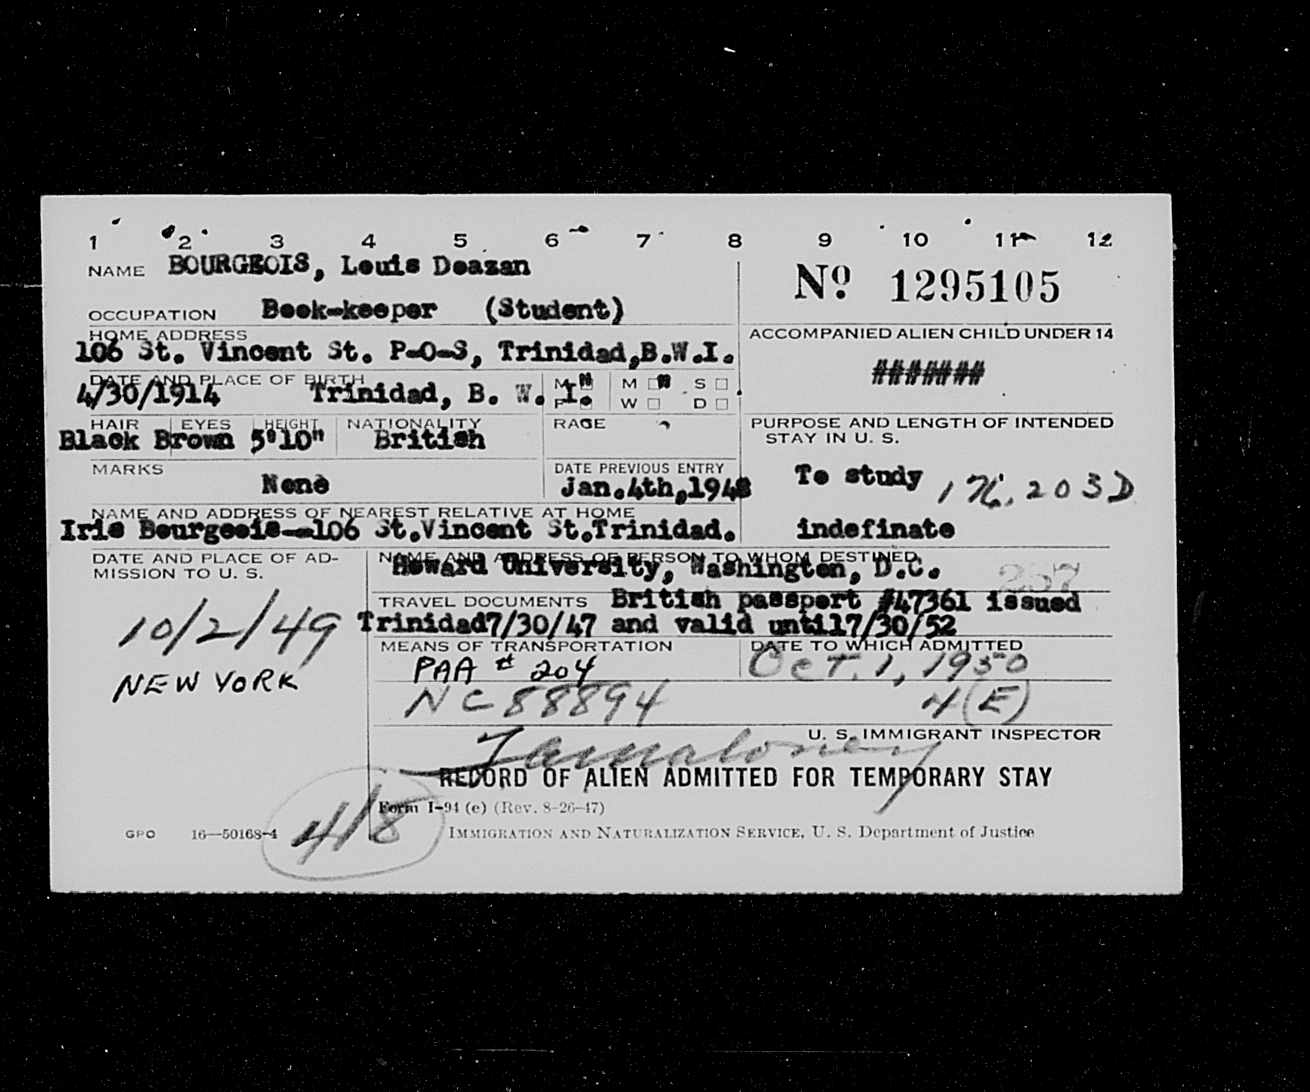 1 2 3 4 5 6 7 8 9 10 11 12
NAME BOURGEOIS, Louis Deazan
Nº 1295105
OCCUPATION Book-keeper (Student)
HOME ADDRESS
106 St. Vincent St. P-O-S, Trinidad,B.W.I.
ACCOMPANIED ALIEN CHILD UNDER 14
#######
DATE AND PLACE OF BIRTH
4/30/1914 Trinidad, B. W. I.
M F
M S
W D
HAIR EYES HEIGHT NATIONALITY RACE
Black Brown 5'10" British
PURPOSE AND LENGTH OF INTENDED
STAY IN U. S.
MARKS
None
DATE PREVIOUS ENTRY
Jan.4th,1948
To study
203D
NAME AND ADDRESS OF NEAREST RELATIVE AT HOME
Iris Bourgeois--106 St.Vincent St.Trinidad.
indefinate
DATE AND PLACE OF AD-
MISSION TO U. S.
10/2/49
NEW YORK
NAME AND ADDRESS OF PERSON TO WHOM DESTINED
Howard University, Washington, D.C.
257
TRAVEL DOCUMENTS British passport #47361 issued
Trinidad7/30/47 and valid until7/30/52
MEANS OF TRANSPORTATION
PAA # 204
NC88894
DATE TO WHICH ADMITTED
Oct. 1, 1950
4(E)
U. S. IMMIGRANT INSPECTOR
RECORD OF ALIEN ADMITTED FOR TEMPORARY STAY
Form I-94 (e) (Rev. 8-26-47)
GPO 16—50168-4
4/8
IMMIGRATION AND NATURALIZATION SERVICE, U. S. Department of Justice